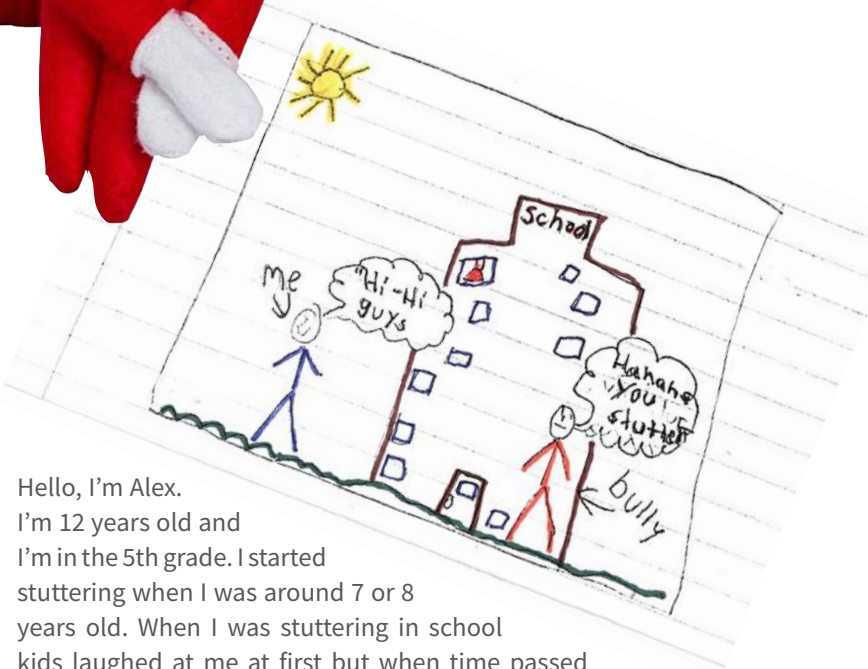 school
me
"Hi-Hi
guys
Hahaha
You
stutter
bully
Hello, I'm Alex.
I'm 12 years old and
I'm in the 5th grade. I started
stuttering when I was around 7 or 8
years old. When I was stuttering in school
kids laughed at me at first but when time passed